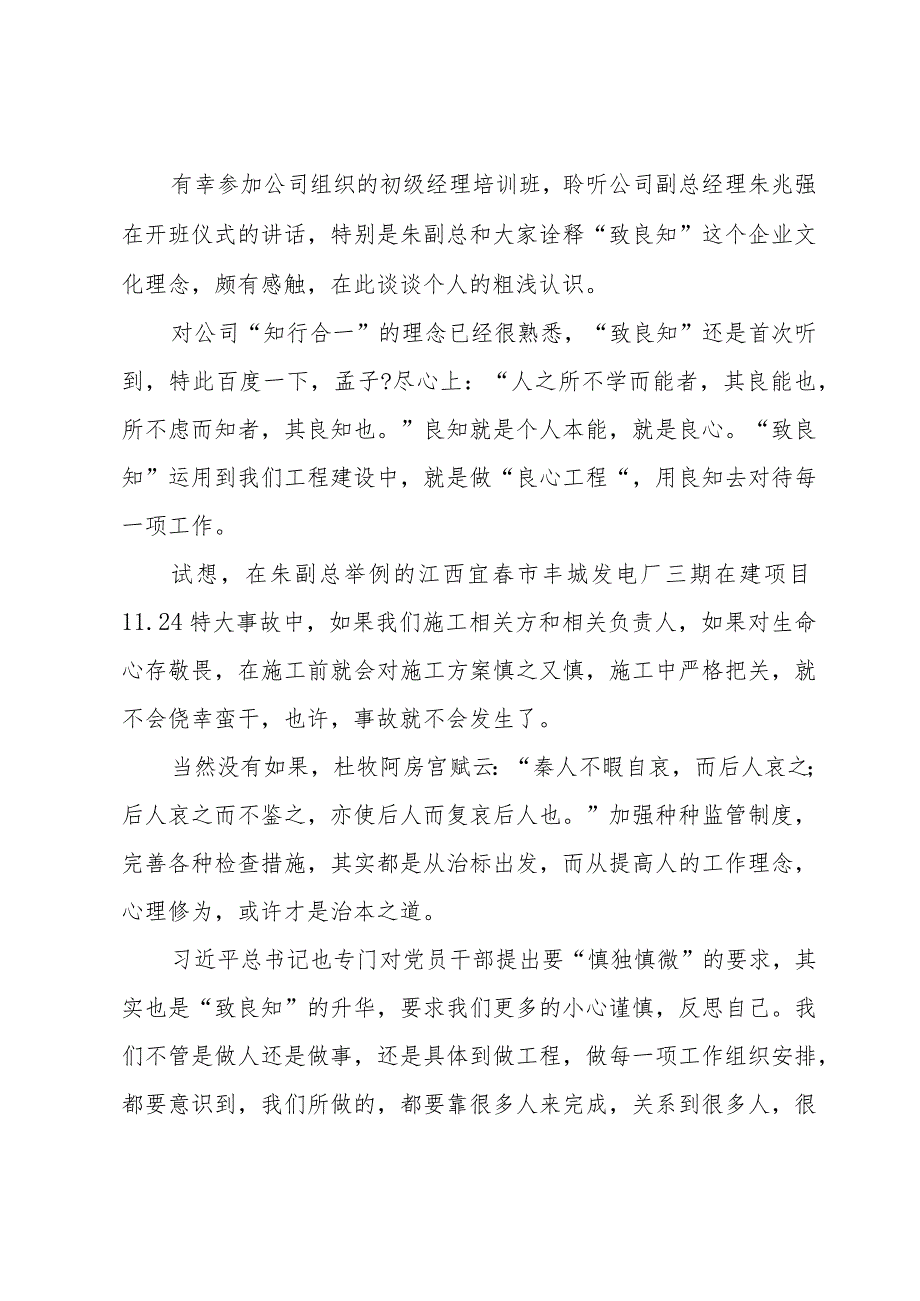 有幸参加公司组织的初级经理培训班，聆听公司副总经理朱兆强
在开班仪式的讲话，特别是朱副总和大家诠释“致良知”这个企业文
化理念，颇有感触，在此谈谈个人的粗浅认识。
对公司“知行合一”的理念已经很熟悉，“致良知”还是首次听
到，特此百度一下，孟子?尽心上：“人之所不学而能者，其良能也，
所不虑而知者，其良知也。”良知就是个人本能，就是良心。“致良
知”运用到我们工程建设中，就是做“良心工程“，用良知去对待每
一项工作。
试想，在朱副总举例的江西宜春市丰城发电厂三期在建项目
11.24特大事故中，如果我们施工相关方和相关负责人，如果对生命
心存敬畏，在施工前就会对施工方案慎之又慎，施工中严格把关，就
不会侥幸蛮干，也许，事故就不会发生了。
当然没有如果，杜牧阿房宫赋云：“秦人不暇自哀，而后人哀之；
后人哀之而不鉴之，亦使后人而复哀后人也。”加强种种监管制度，
完善各种检查措施，其实都是从治标出发，而从提高人的工作理念，
心理修为，或许才是治本之道。
习近平总书记也专门对党员干部提出要“慎独慎微”的要求，其
实也是“致良知”的升华，要求我们更多的小心谨慎，反思自己。我
们不管是做人还是做事，还是具体到做工程，做每一项工作组织安排，
都要意识到，我们所做的，都要靠很多人来完成，关系到很多人，很